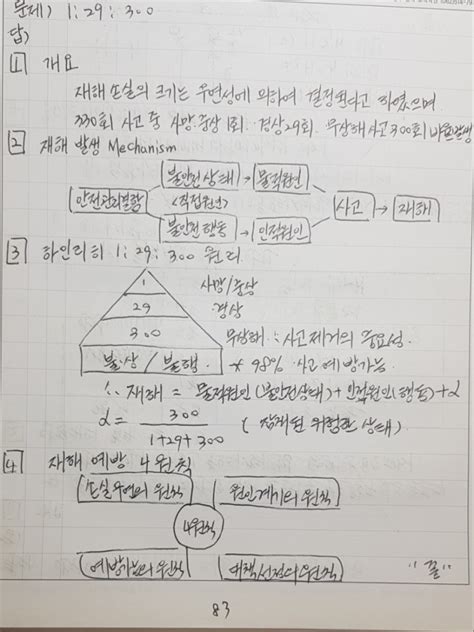 문제) 1:29:300
답)
1 개요
재해손실의 크기는 우연성에 의하여 결정된다고 하였으며
330회 사고 중 사망·중상 1회·경상 29회·무상해사고 300회 비율발생
2 재해 발생 Mechanism
불안전상태 → 물적원인
안전관리결함 <직접원인> 사고 → 재해
불안전행동 → 인적원인
3 하인리히 1:29:300 원리
1 사망/중상
29 경상
300 무상해 ∴ 사고제거의 중요성.
불·상 / 불·행 * 98% 사고예방가능
∴ 재해 = 물적원인(불안전상태) + 인적원인(행동) + α
α = 300 / 1+29+300 (잠재된 위험한 상태)
4 재해 예방 4원칙
손실우연의 원칙 원인계기의 원칙
4원칙
예방가능의 원칙 대책선정의 원칙
"끝"
83